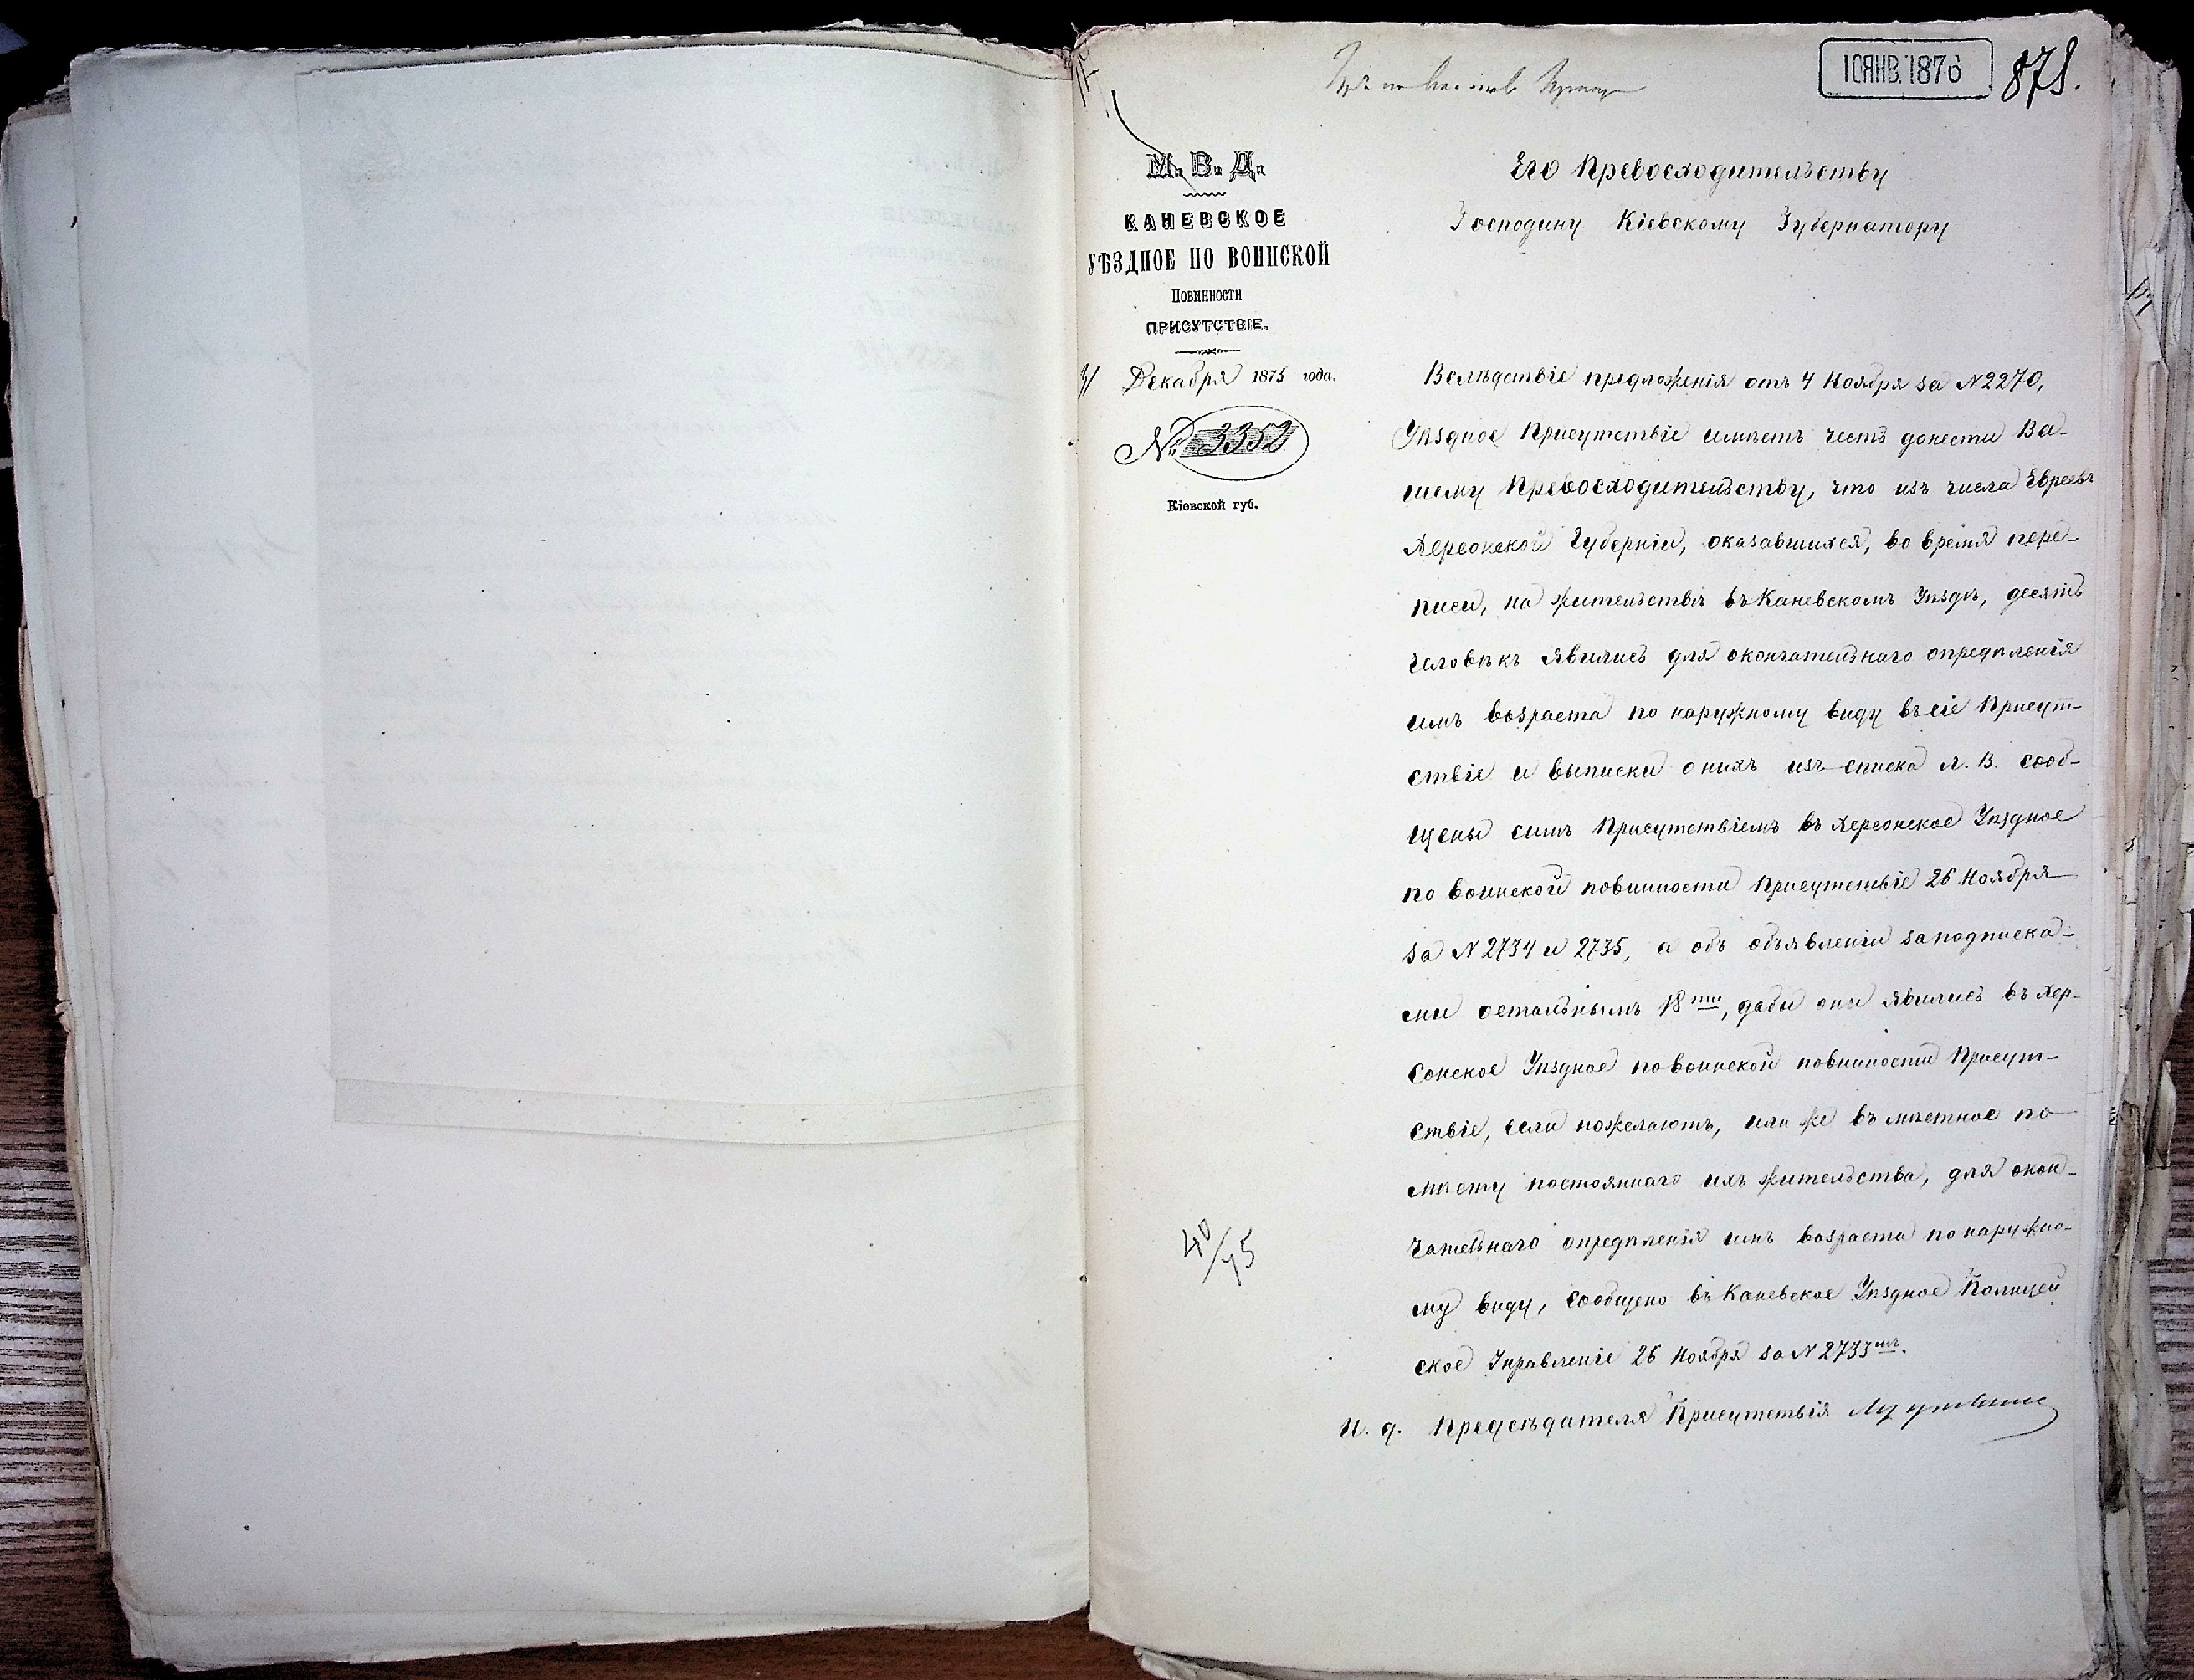 10 ЯНВ. 1876
М. В. Д.
КАНЕВСКОЕ
УѢЗДНОЕ ПО ВОИНСКОЙ
Повинности
ПРИСУТСТВІЕ.
31 Декабря 1875 года.
№ 3352
Кіевской губ.
Его Превосходительству
Господину Кіевскому Губернатору
Вслѣдствіе предложенія отъ 4 Ноября за N 2270,
Уѣздное Присутствіе имѣетъ честь донести Ва-
шему Превосходительству, что изъ числа Евреевъ
Херсонской Губерніи, оказавшихся, во время пере-
писи, на жительствѣ въ Каневскомъ Уѣздѣ, десять
человѣкъ явились для окончательнаго опредѣленія
имъ возраста по наружному виду въ сіе Присут-
ствіе и выписки о нихъ изъ списка л. В. сооб-
щены симъ Присутствіемъ въ Херсонское Уѣздное
по воинской повинности Присутствіе 26 Ноября
за N 2734 и 2735, а объ объявленіи за подписка-
ми остальнымъ 18ти, дабы они явились въ Хер-
сонское Уѣздное по воинской повинности Присут-
ствіе, если пожелаютъ, или же въ мѣстное по
мѣсту постояннаго ихъ жительства, для окон-
чательнаго опредѣленія имъ возраста по наружно-
му виду, сообщено въ Каневское Уѣздное Полицей
ское Управленіе 26 Ноября за N 2733мъ.
И. д. Предсѣдателя Присутствія
40/75